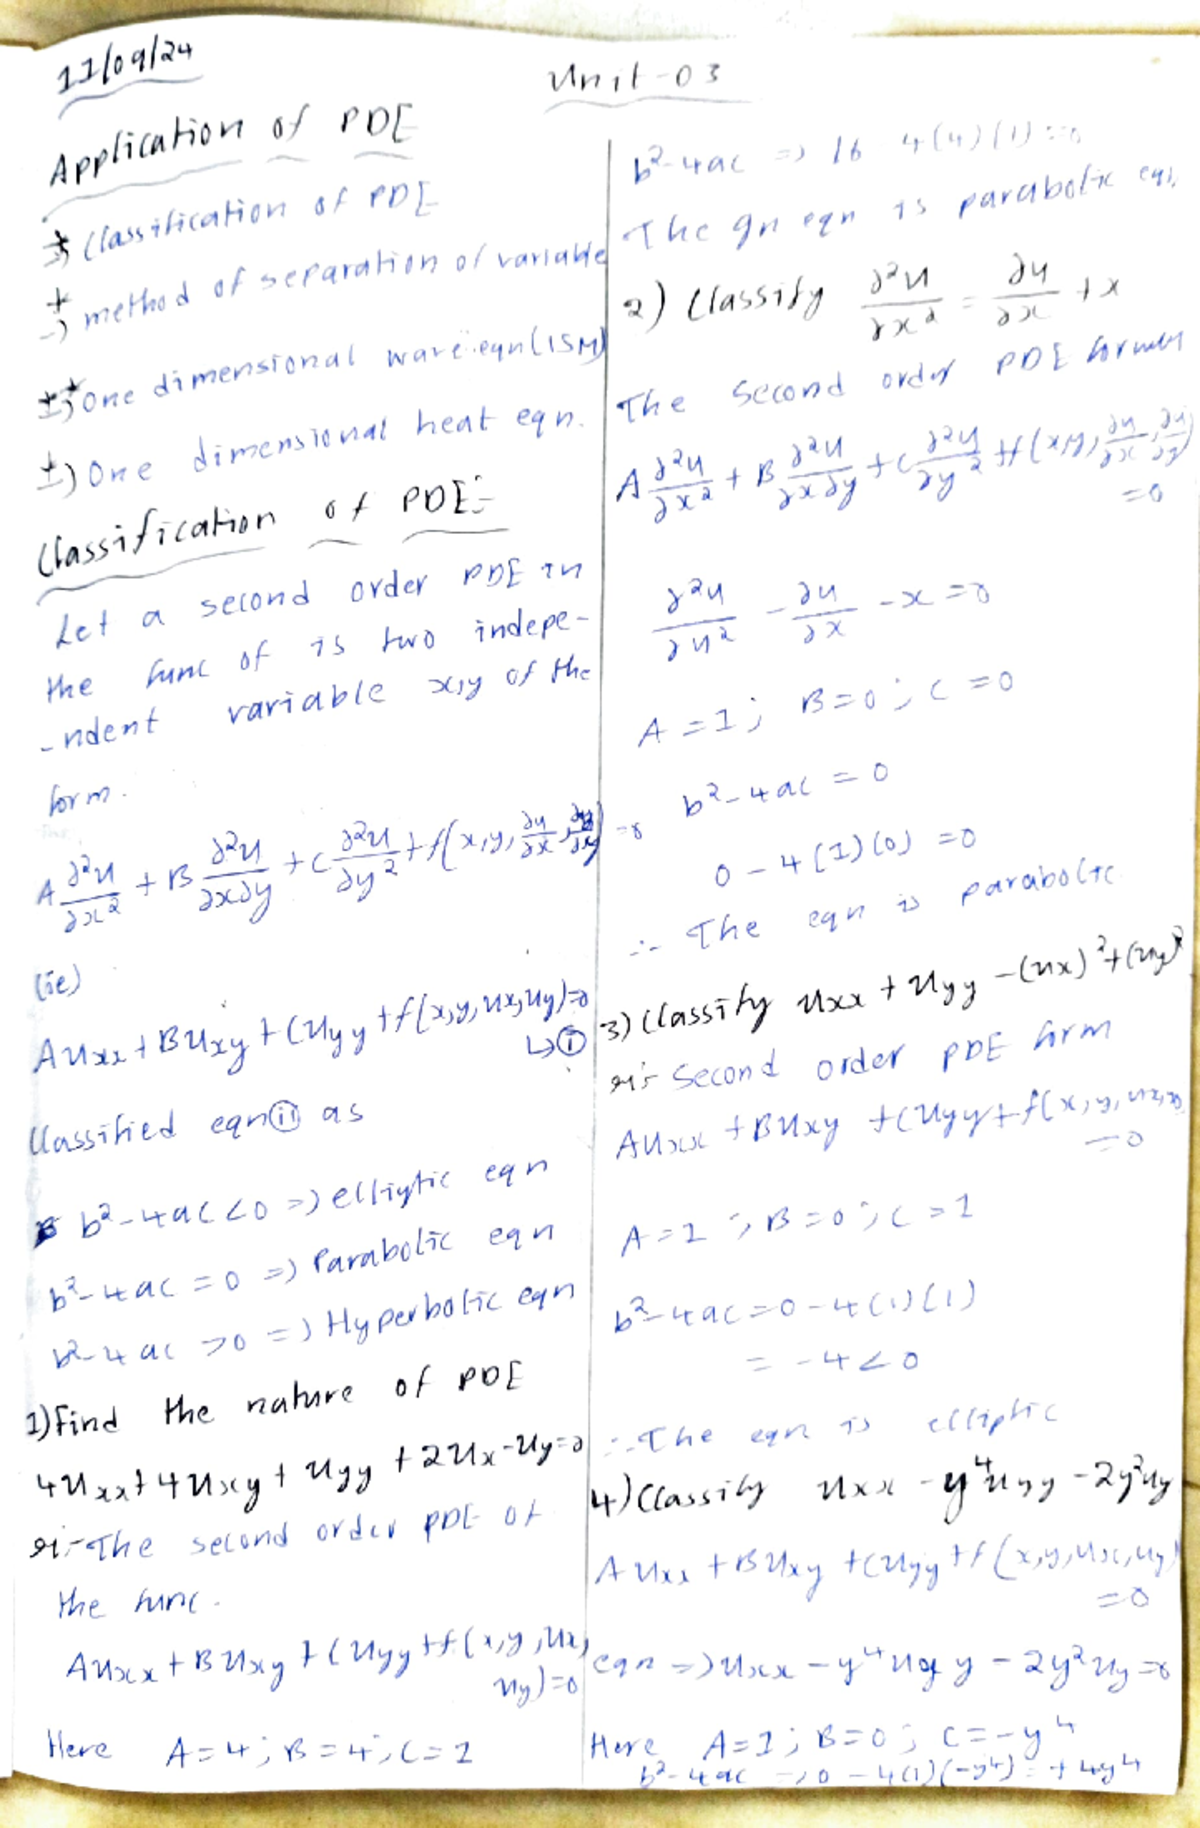 11/09/24
Unit-03
Application of PDE
→ Classification of PDE
→ method of separation of variable
→ One dimensional wave eqn (15M)
→ One dimensional heat eqn.
Classification of PDE:-
Let a second order PDE in
the func of is two indepe-
-ndent variable x,y of the
form.
A ∂²u/∂x² + B ∂²u/∂x∂y + C ∂²u/∂y² + f(x,y, ∂u/∂x, ∂u/∂y) = 0
(ie)
A uxx + B uxy + C uyy + f(x,y,ux,uy)=0
↳ ①
Classified eqn ⓘ as
b²-4ac <0 => elliytic eqn
b²-4ac = 0 => Parabolic eqn
b²-4ac >0 => Hyperbolic eqn
1) Find the nature of PDE
4uxx + 4uxy + uyy + 2ux - uy = 0
The second order PDE of
the func.
Auxx + Buxy + Cuyy + f(x,y,ux,
uy)=0
Here A=4; B=4; C=1
b²-4ac => 16 4(4)(1) = 0
The gn eqn is parabolic eqn
2) Classify ∂²u/∂x² = ∂u/∂x + x
The Second order PDE
A ∂²u/∂x² + B ∂²u/∂x∂y + C ∂²u/∂y² + f(x,y, ∂u/∂x, ∂u/∂y)
=0
∂²u/∂u² - ∂u/∂x - x = 0
A = 1; B=0; C=0
b²-4ac = 0
0 - 4(1)(0) = 0
∴ The eqn is parabolic
3) Classify uxx + uyy - (ux)² + (uy)²
Second order PDE form
Auxx + Buxy + Cuyy + f(x,y,ux,uy)
=0
A=1; B=0; C=1
b²-4ac = 0-4(1)(1)
= -4<0
∴ The eqn is elliptic
4) Classify uxx - y⁴uyy - 2y²uy
Auxx + Buxy + Cuyy + f(x,y,ux,uy)
=0
eqn => uxx - y⁴uyy - 2y²uy = 0
Here A=1; B=0; C=-y⁴
b²-4ac => 0 - 4(1)(-y⁴) = +4y⁴